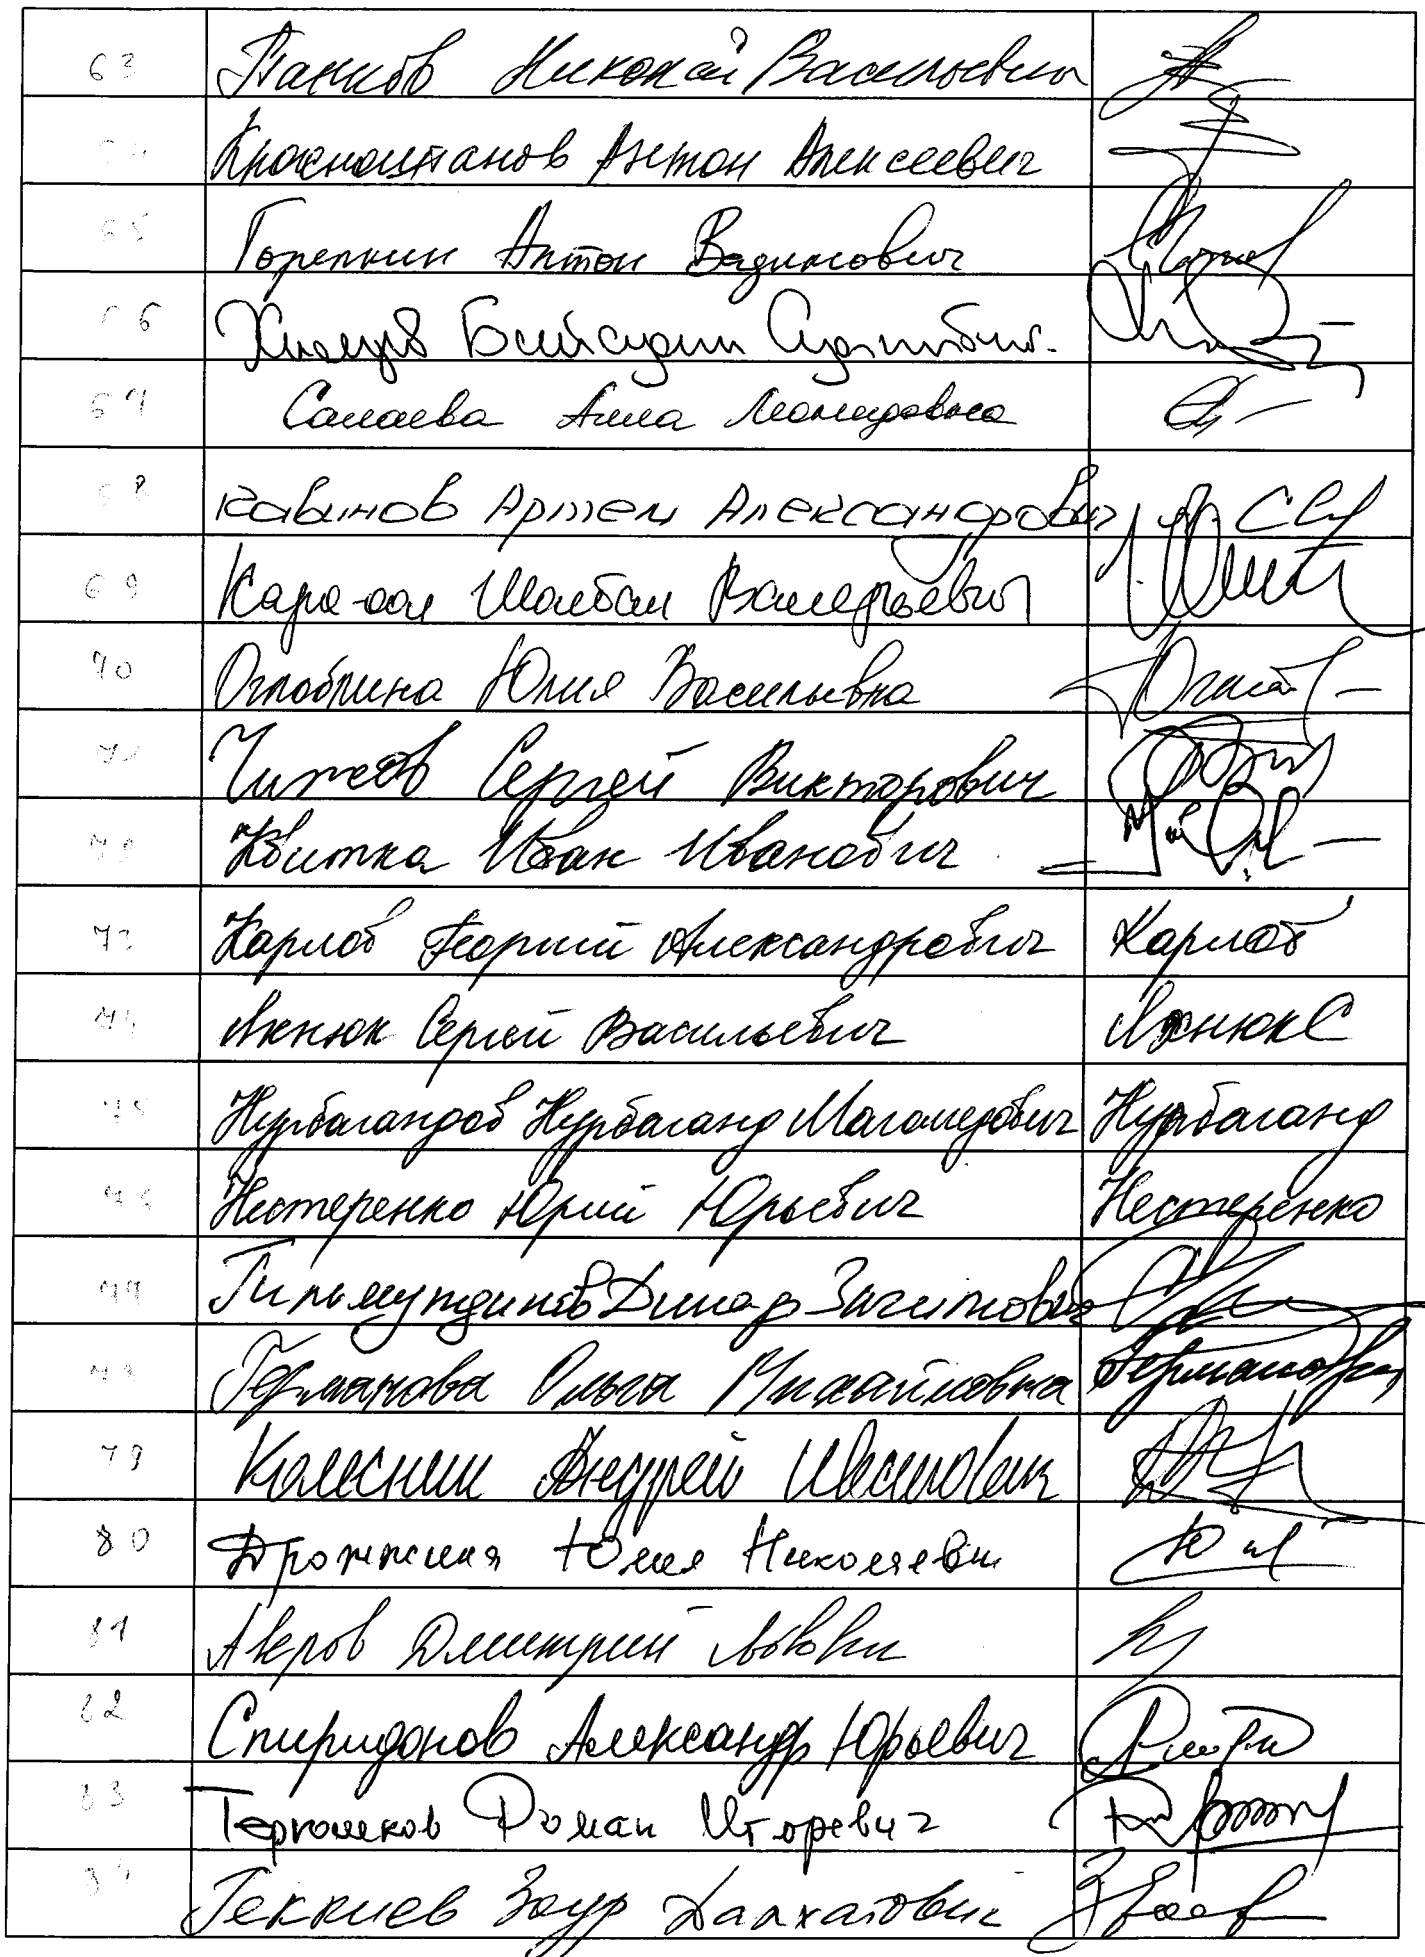 63 Панков Николай Васильевич
64 Красноштанов Антон Алексеевич
65 Горелкин Антон Вадимович
66 Хамзаев Бийсултан Султанбиевич
67 Салаева Алла Леонидовна
68 Кавинов Артем Александрович
69 Кара-оол Шолбан Валерьевич
70 Оглоблина Юлия Васильевна
71 Чижов Сергей Викторович
72 Квитка Иван Иванович
73 Карлов Георгий Александрович Карлов
74 Якнюк Сергей Васильевич Якнюк С
75 Нурбагандов Нурбаганд Магомедович Нурбаганд
76 Нестеренко Юрий Юрьевич Нестеренко
77 Гильмутдинов Динар Загитович
78 Германова Ольга Михайловна Германова
79 Колесник Андрей Иванович
80 Дрожжина Юлия Николаевн
81 Аверов Дмитрий Львович
82 Спиридонов Александр Юрьевич
83 Терюшков Роман Игоревич
84 Геккиев Заур Далхатович